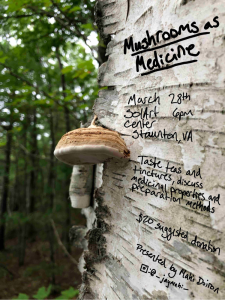 Mushrooms as
Medicine
March 28th
SolArt 6pm
Center
Staunton, VA
Taste teas and
tinctures, discuss
medicinal properties and
preparation methods
$20 suggested donation
Presented by